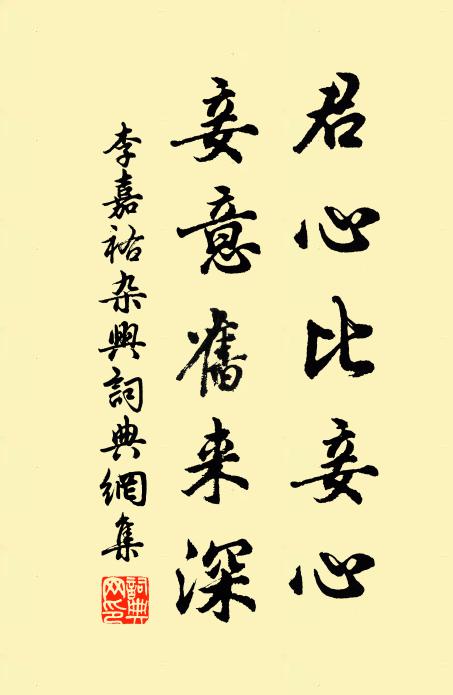 君心比妾心
妾意舊来深
李嘉祐杂興詞典網集
詞典网印